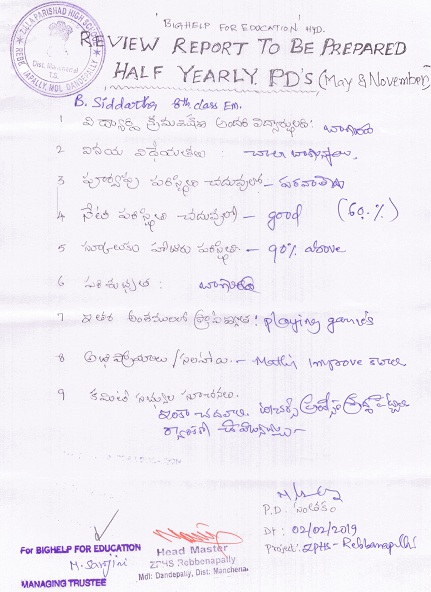 ZILLA PARISHAD HIGH SCHOOL
REBBENAPALLY, MDL. DANDEPALLY
Dist. Mancherial
T.S.
'BIGHELP FOR EDUCATION' HYD.
REVIEW REPORT TO BE PREPARED
HALF YEARLY PD'S (May & November)
B. Siddartha 8th class Em.
1 విద్యార్థి క్రమశిక్షణ
2 వినయ విధేయతలు : చాలా
3 పూర్వపు పరిస్థితి చదువులో -
4 నేటి పరిస్థితి చదువులో - good (60.%)
5 స్కూలుకు హాజరు పరిస్థితి - 90% above
6 పరిశుభ్రత : బాగుంది
7 ఇతర అంశములలో : playing games
8 అభిప్రాయాలు / సలహాలు - Maths Improve కావాలి
9 కమిటీ సభ్యుల సూచనలు.
ఇంకా చదవాలి.
P.D. సంతకం
Dt : 02/02/2019
Project: ZPHS - Rebbanapalli
For BIGHELP FOR EDUCATION
M. Sanjini
MANAGING TRUSTEE
Head Master
ZPHS Rebbenapally
Mdl: Dandepally, Dist. Mancherial